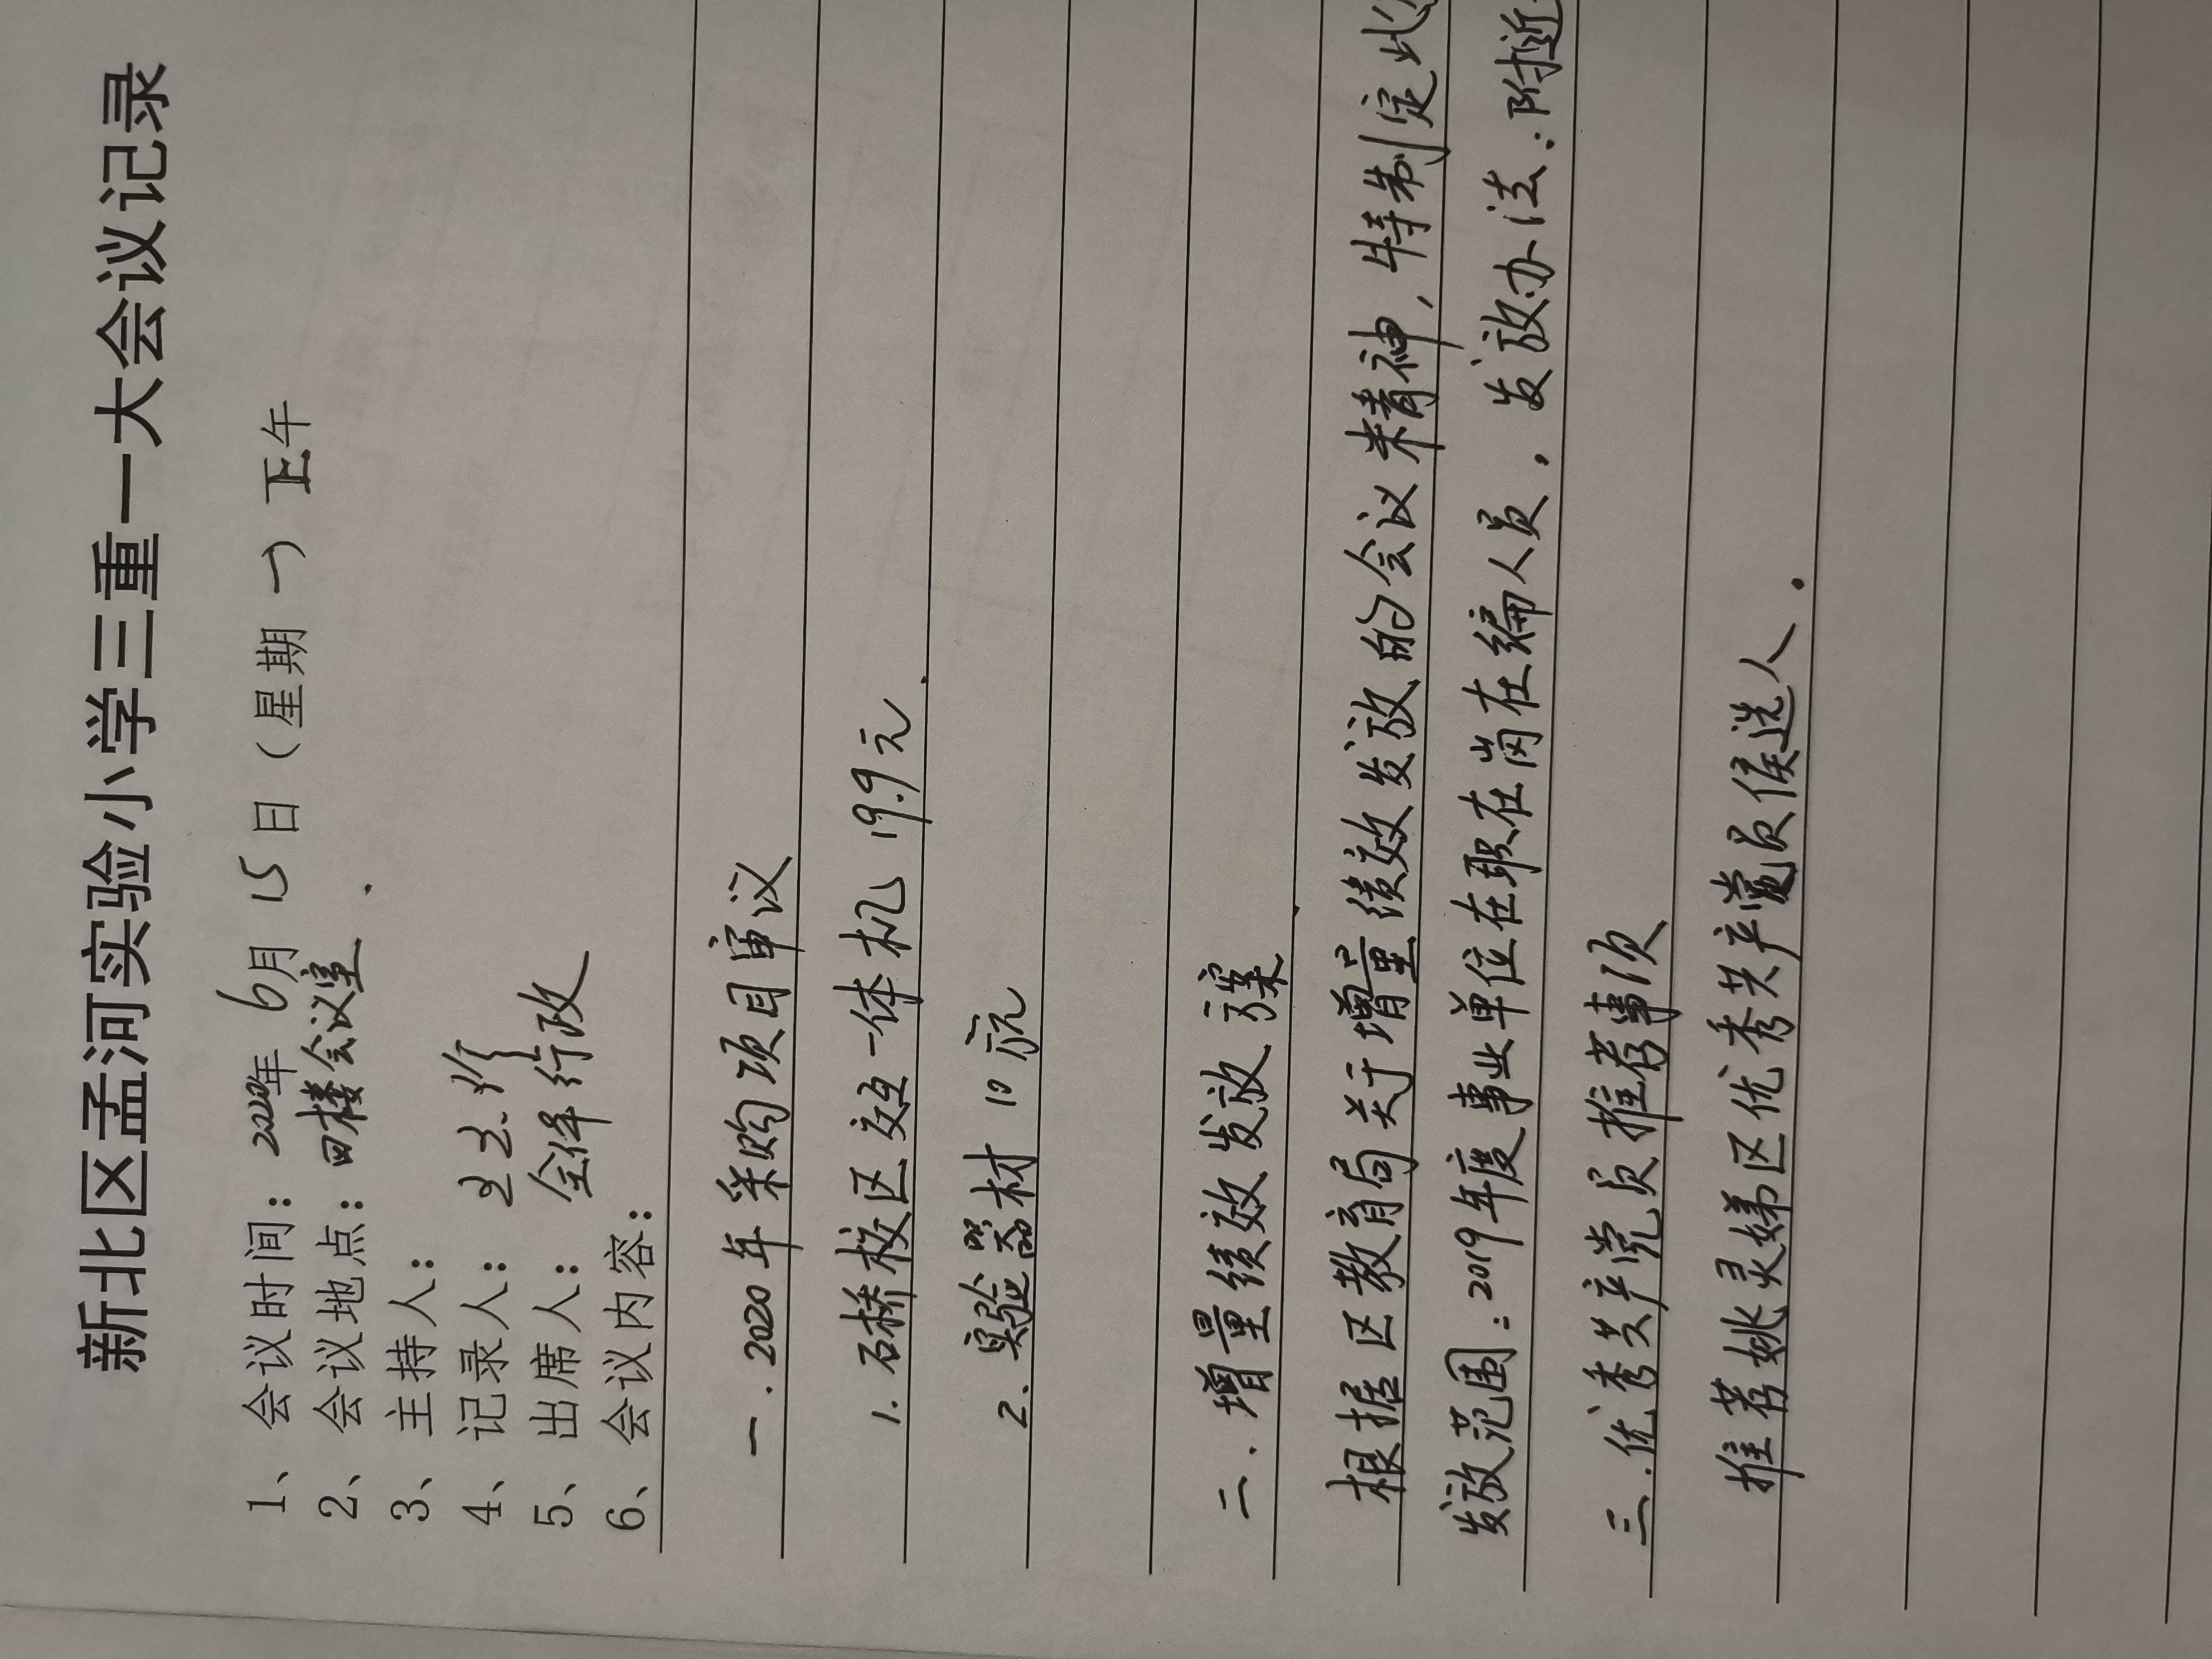 新北区孟河实验小学三重一大会议记录
1、会议时间：2020年 6月 15 日（星期 一）下午
2、会议地点：四楼会议室
3、主持人：
4、记录人：
5、出席人：全体行政
6、会议内容：
一．2020年采购项目审议
1. 石桥校区交互一体机 19.9元
2. 实验器材 10万元
二．增量绩效发放方案
根据区教育局关于增量绩效发放的会议精神，特制定此
发放范围：2019年度事业单位在职在岗在编人员，发放办法：附近
三．优秀共产党员推荐事项
推荐姚灵娣区优秀共产党员候选人．